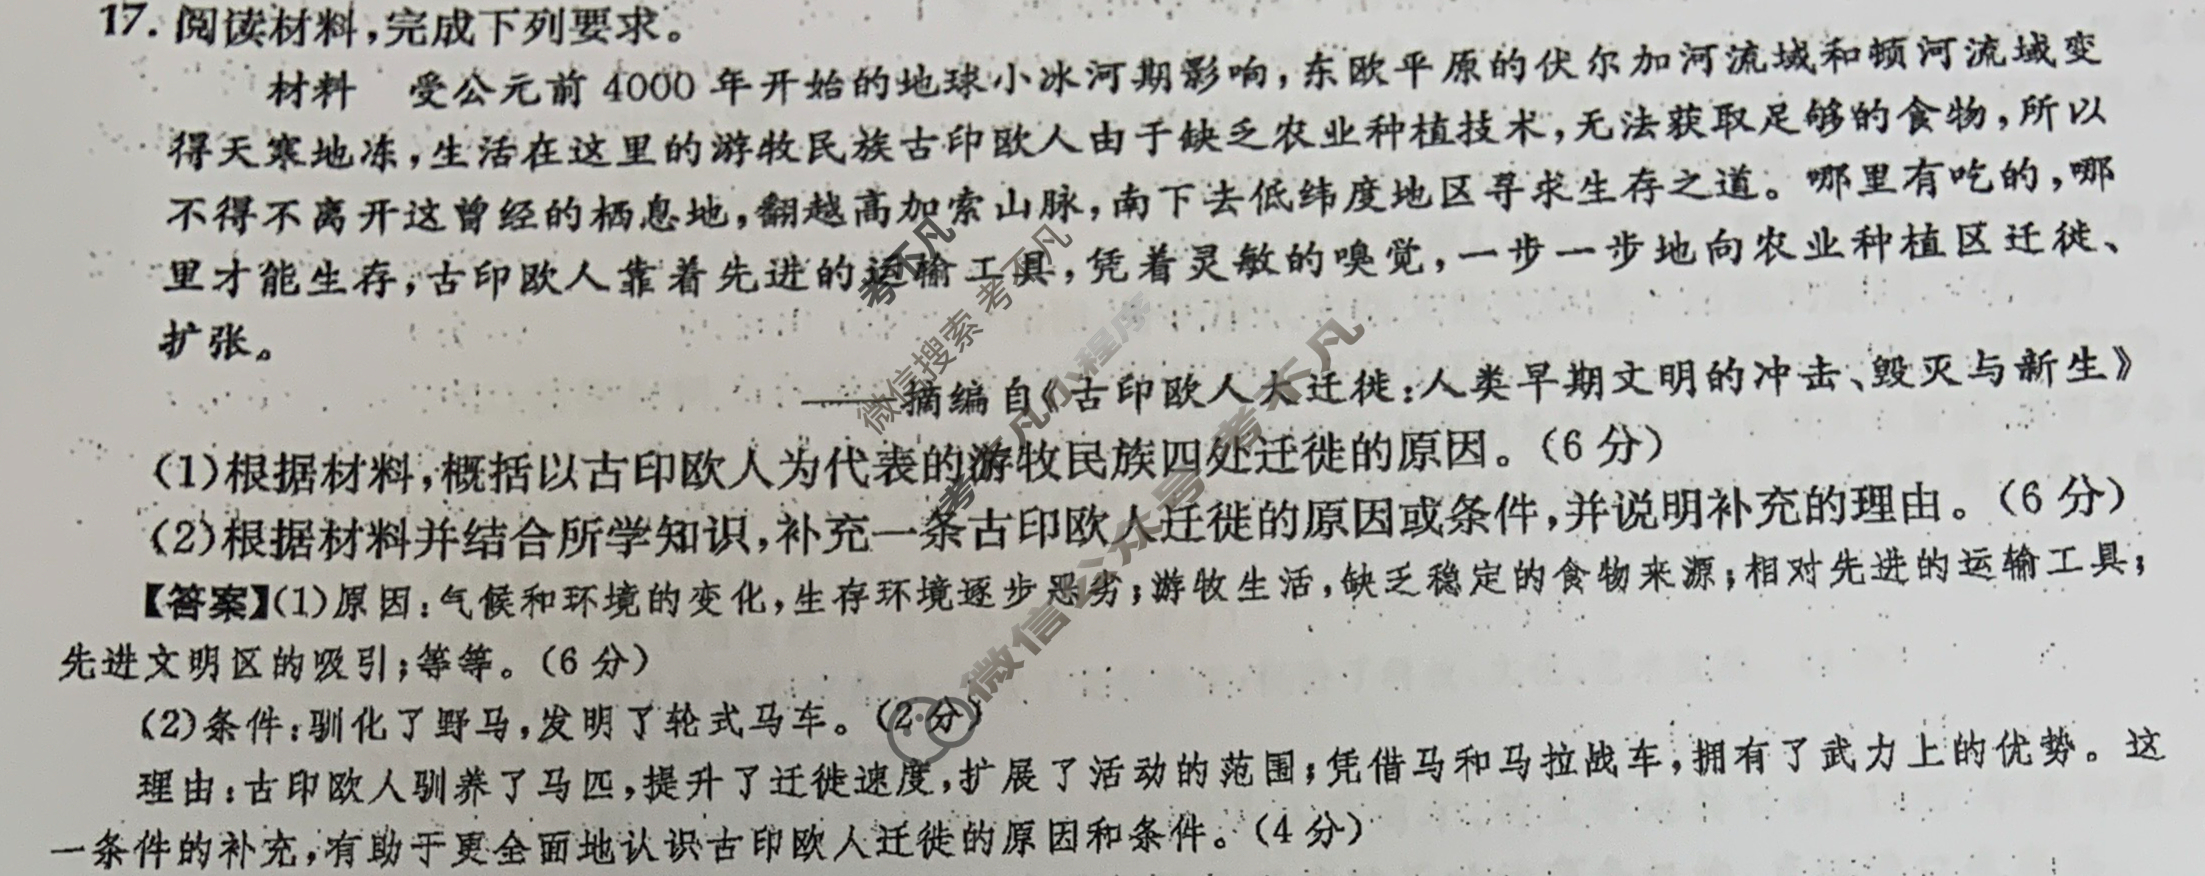 17. 阅读材料，完成下列要求。
材料 受公元前 4000 年开始的地球小冰河期影响，东欧平原的伏尔加河流域和顿河流域变
得天寒地冻，生活在这里的游牧民族古印欧人由于缺乏农业种植技术，无法获取足够的食物，所以
不得不离开这曾经的栖息地，翻越高加索山脉，南下去低纬度地区寻求生存之道。哪里有吃的，哪
里才能生存，古印欧人靠着先进的运输工具，凭着灵敏的嗅觉，一步一步地向农业种植区迁徙、
扩张。
——摘编自《古印欧人大迁徙：人类早期文明的冲击、毁灭与新生》
(1)根据材料，概括以古印欧人为代表的游牧民族四处迁徙的原因。（6 分）
(2)根据材料并结合所学知识，补充一条古印欧人迁徙的原因或条件，并说明补充的理由。（6 分）
【答案】(1)原因：气候和环境的变化，生存环境逐步恶劣；游牧生活，缺乏稳定的食物来源；相对先进的运输工具；
先进文明区的吸引；等等。（6 分）
(2)条件：驯化了野马，发明了轮式马车。（2 分）
理由：古印欧人驯养了马匹，提升了迁徙速度，扩展了活动的范围；凭借马和马拉战车，拥有了武力上的优势。这
一条件的补充，有助于更全面地认识古印欧人迁徙的原因和条件。（4 分）
考不凡
微信搜索 考不凡
考不凡小程序
微信公众号 考不凡